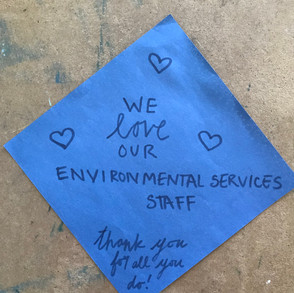 WE
love
OUR
ENVIRONMENTAL SERVICES
STAFF
thank you
for all you
do!